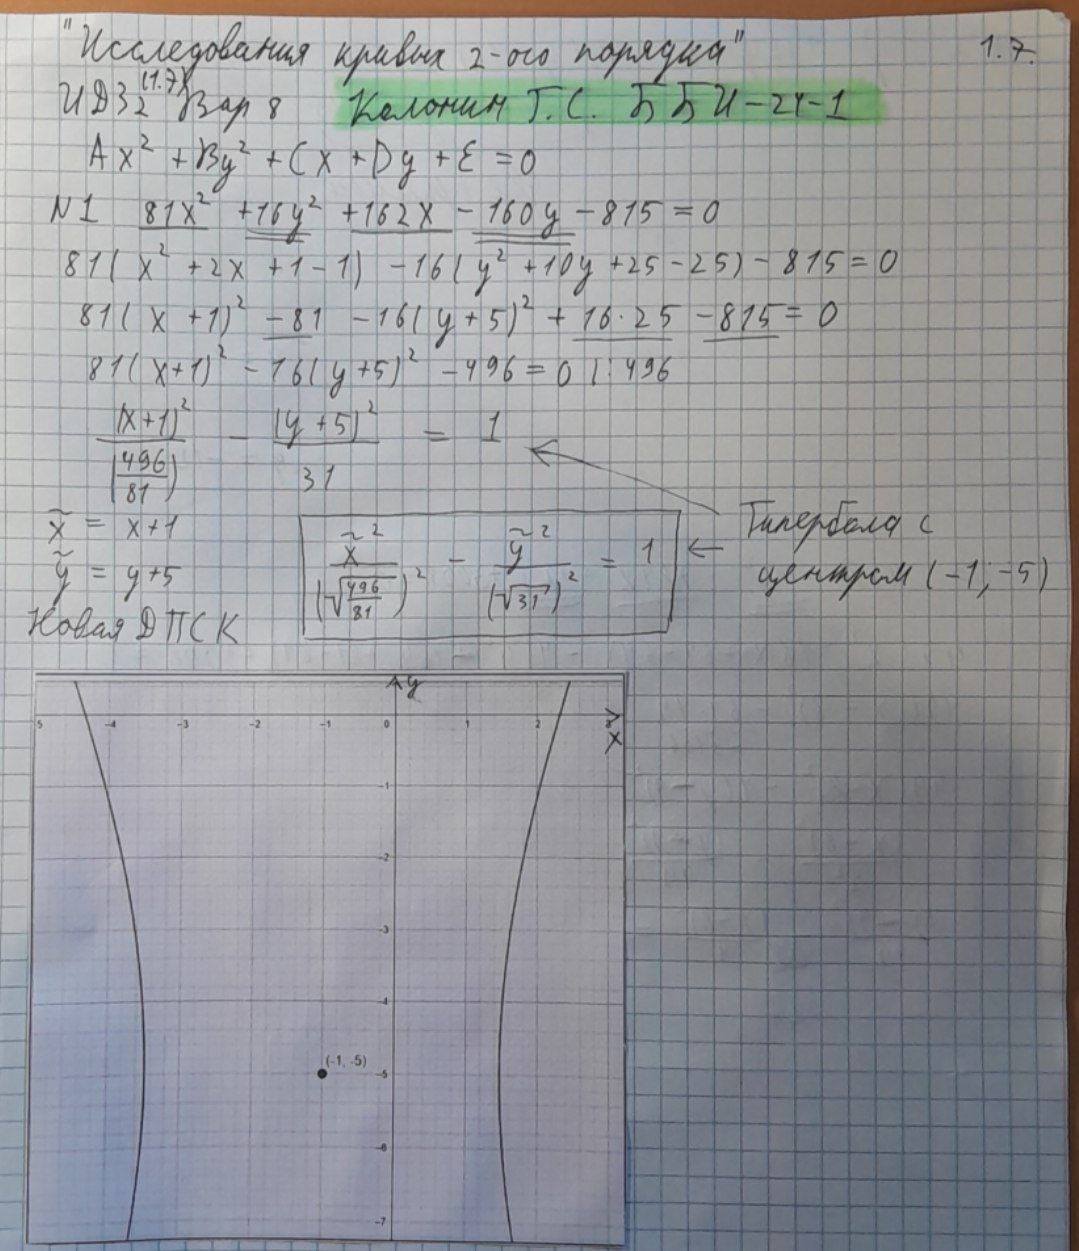 "Исследования кривых 2-ого порядка" 1.7.
ИДЗ2 (1.7) Вар 8 Колонин Г.С. ББИ-24-1
Ax² + By² + Cx + Dy + E = 0
N1 81x² +16y² +162x - 160y - 815 = 0
81(x² + 2x + 1 - 1) - 16(y² + 10y + 25 - 25) - 815 = 0
81(x + 1)² - 81 - 16(y + 5)² + 16·25 - 815 = 0
81(x+1)² - 16(y+5)² - 496 = 0 |: 496
(x+1)²/(496/81) - (y+5)²/31 = 1
x̃ = x+1
ỹ = y+5
x̃²/(√(496/81))² - ỹ²/(√31)² = 1
Гипербола с
центром (-1; -5)
Новая ДПСК
y
5 -4 -3 -2 -1 0 1 2
x
-1
-2
-3
-4
(-1, -5)
-5
-6
-7